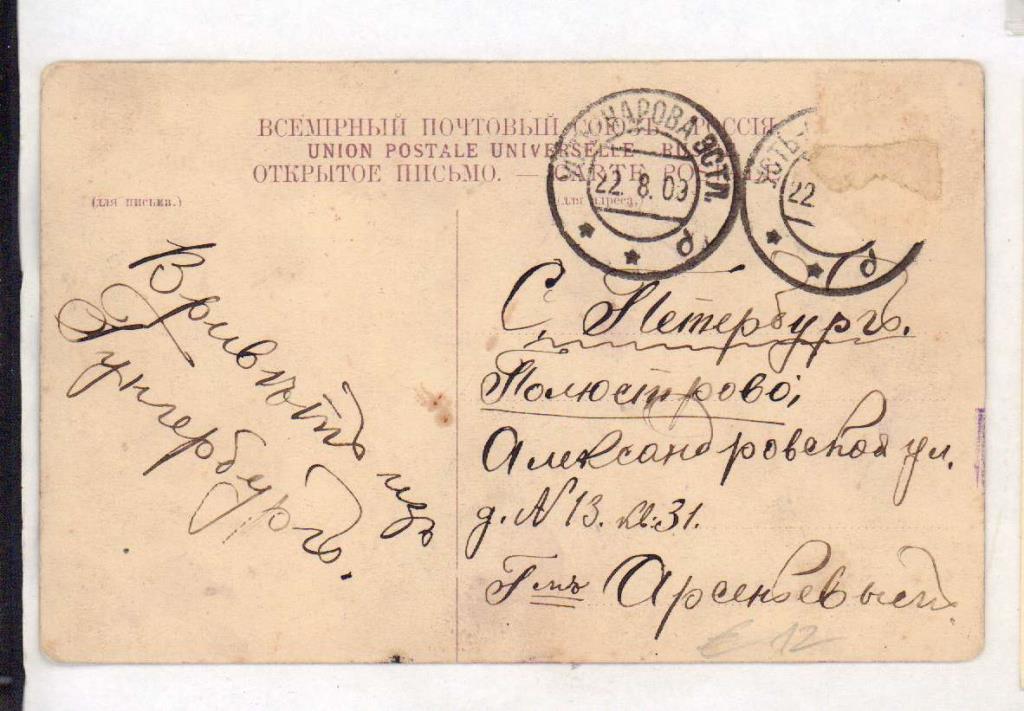 ВСЕМІРНЫЙ ПОЧТОВЫЙ СОЮЗЪ. РОССІЯ.
UNION POSTALE UNIVERSELLE. RU
ОТКРЫТОЕ ПИСЬМО. — CARTE PO
(для письма.)
(для адреса.)
22. 8. 09
ЭСТЛ.
УСТЬ-
22
Привѣтъ изъ
Гунгербурга.
С. Петербургъ.
Полюстрово;
Александровская ул.
д. N 13. кв. 31.
Г-мъ Арсеньевымъ
€ 12